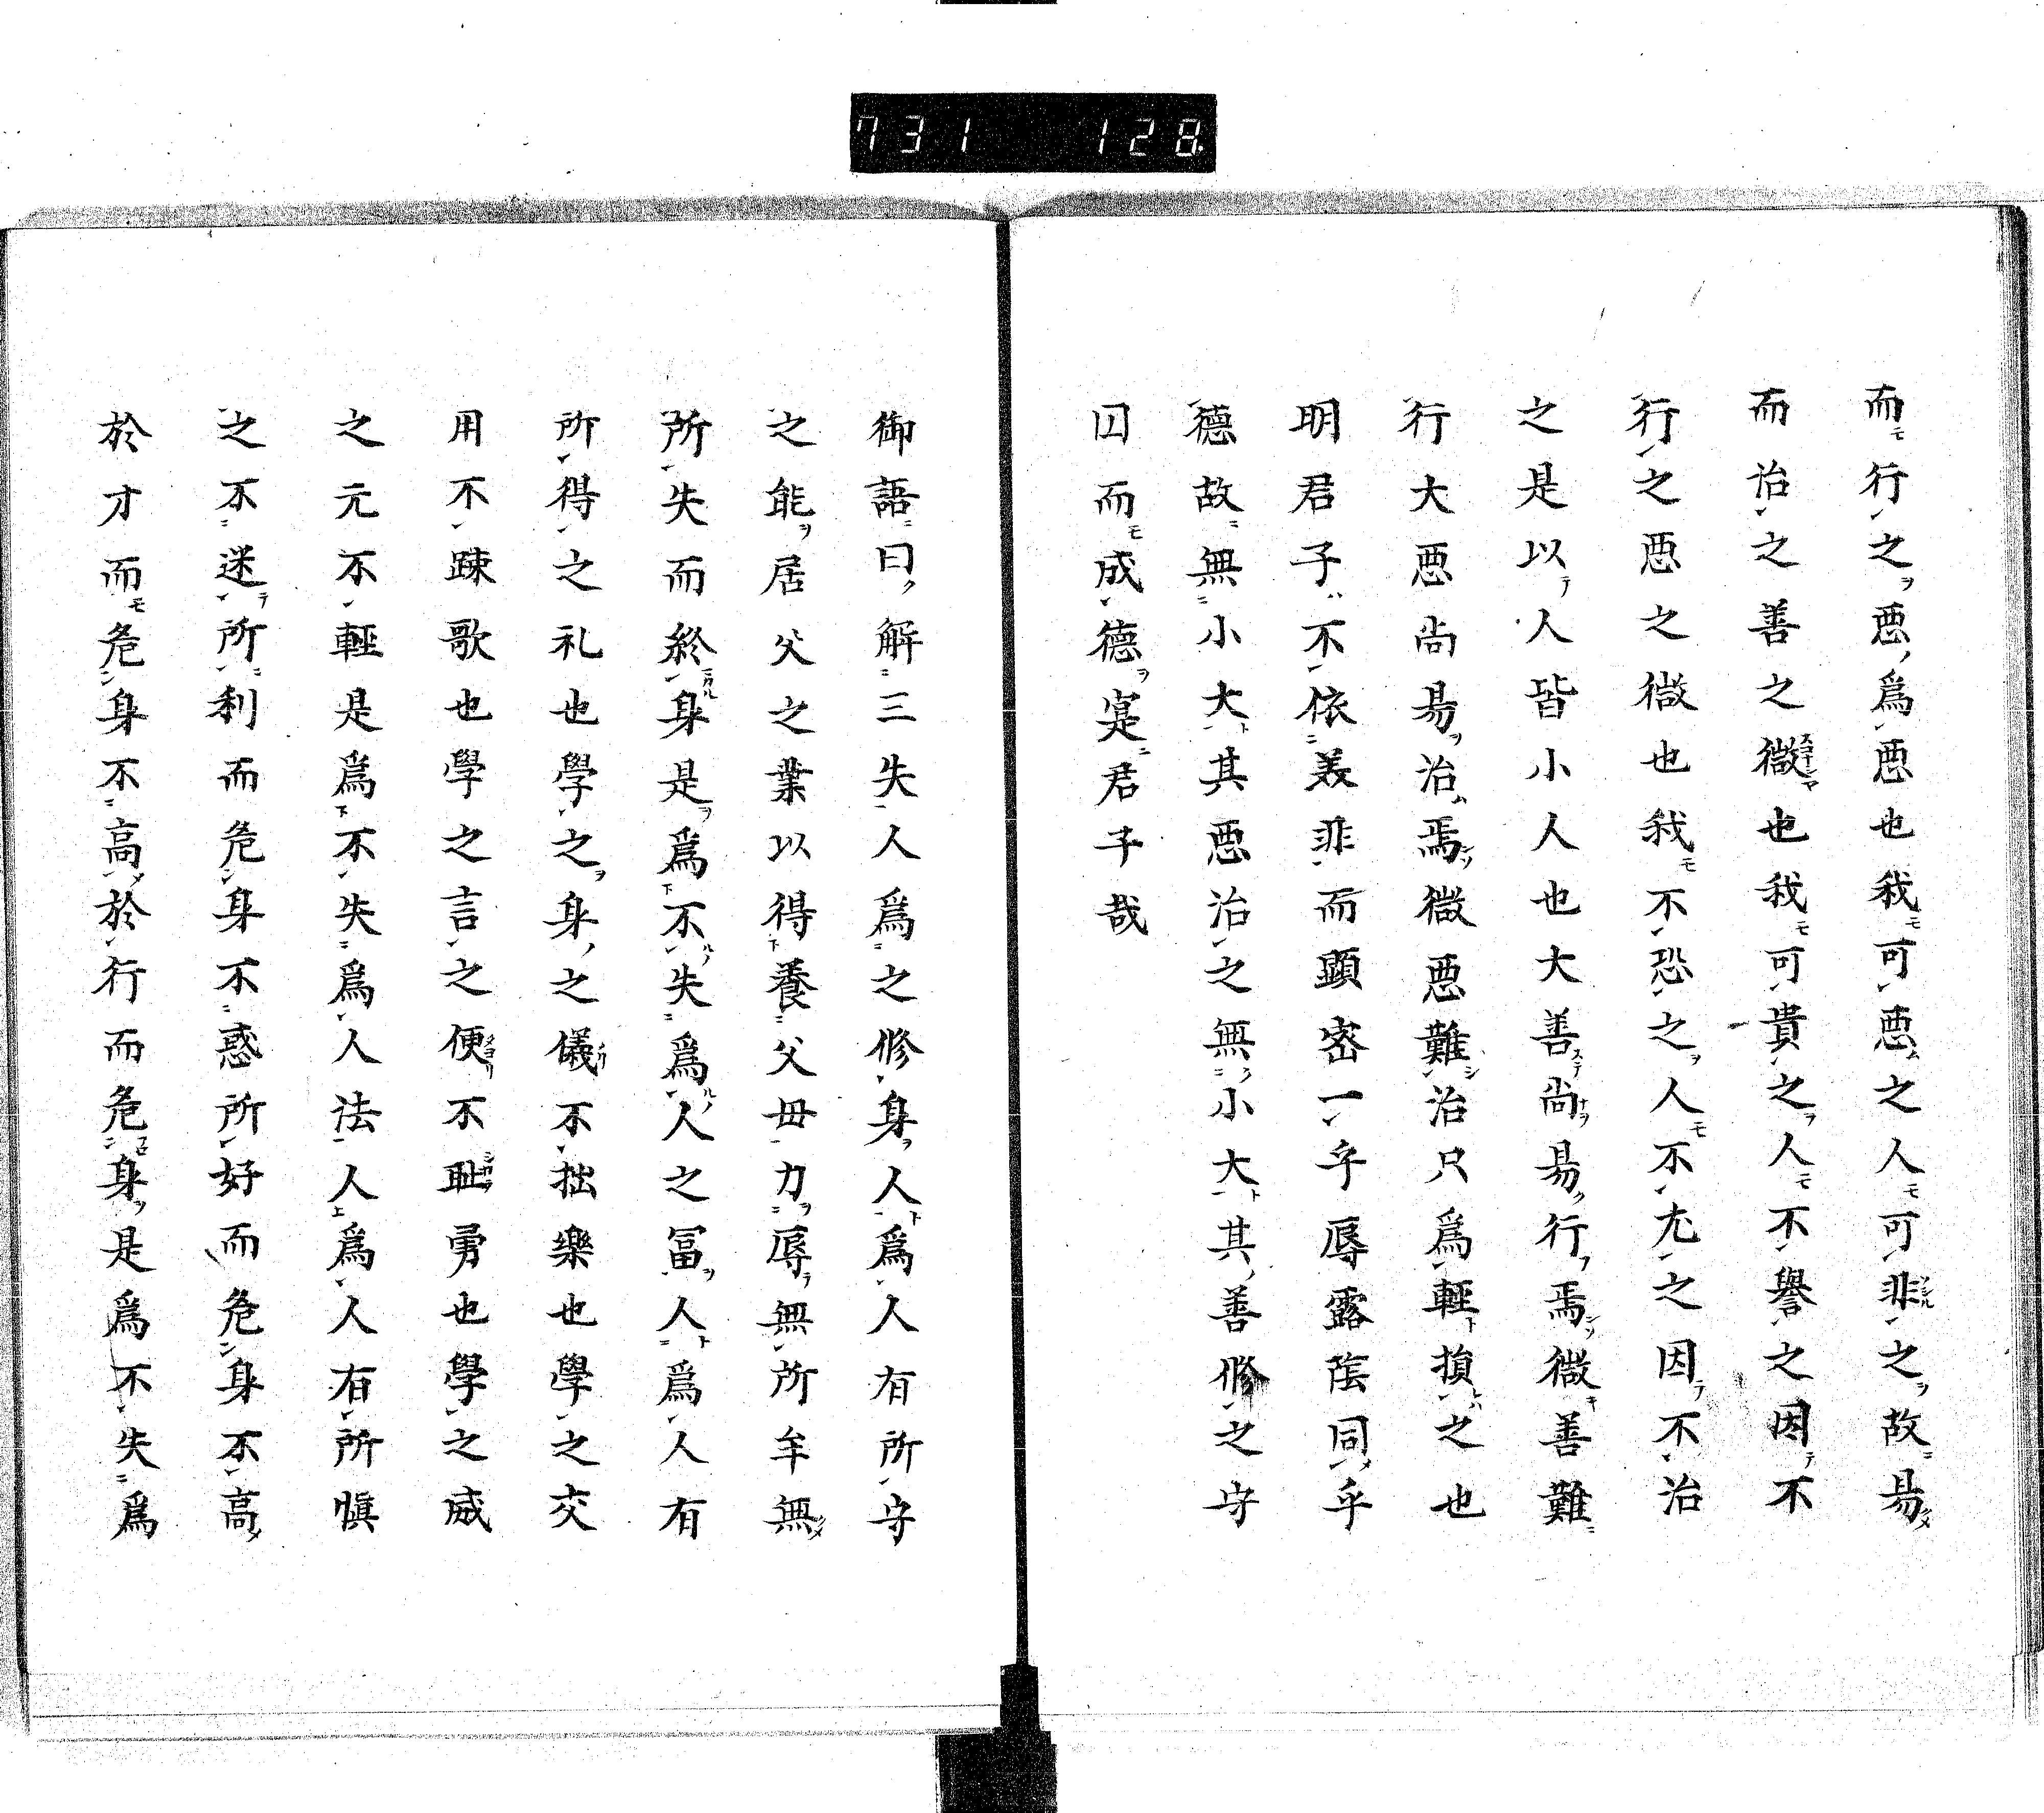 731 128
而行之悪爲悪也我可悪之人可非之故易
而治之善之微也我可貴之人不譽之因不
行之悪之微也我不恐之人不尤之因不治
之是以人皆小人也大善尚易行焉微善難
行大悪尚易治焉微悪難治只爲輕損之也
明君子不依美非而顕密一乎辱露陰同乎
德故無小大其悪治之無小大其善修之守
因而成德寔君子哉
御語曰解三失人爲之修身人爲人有所守
之能居父之業以得養父毋力辱無所牟無
所失而終身是爲不失爲人之冨人爲人有
所得之礼也學之身之儀不拙樂也學之交
用不疎歌也學之言之便不耻勇也學之威
之元不輕是爲不失爲人法人爲人有所慎
之不迷所利而危身不惑所好而危身不高
於才而危身不高於行而危身是爲不失爲